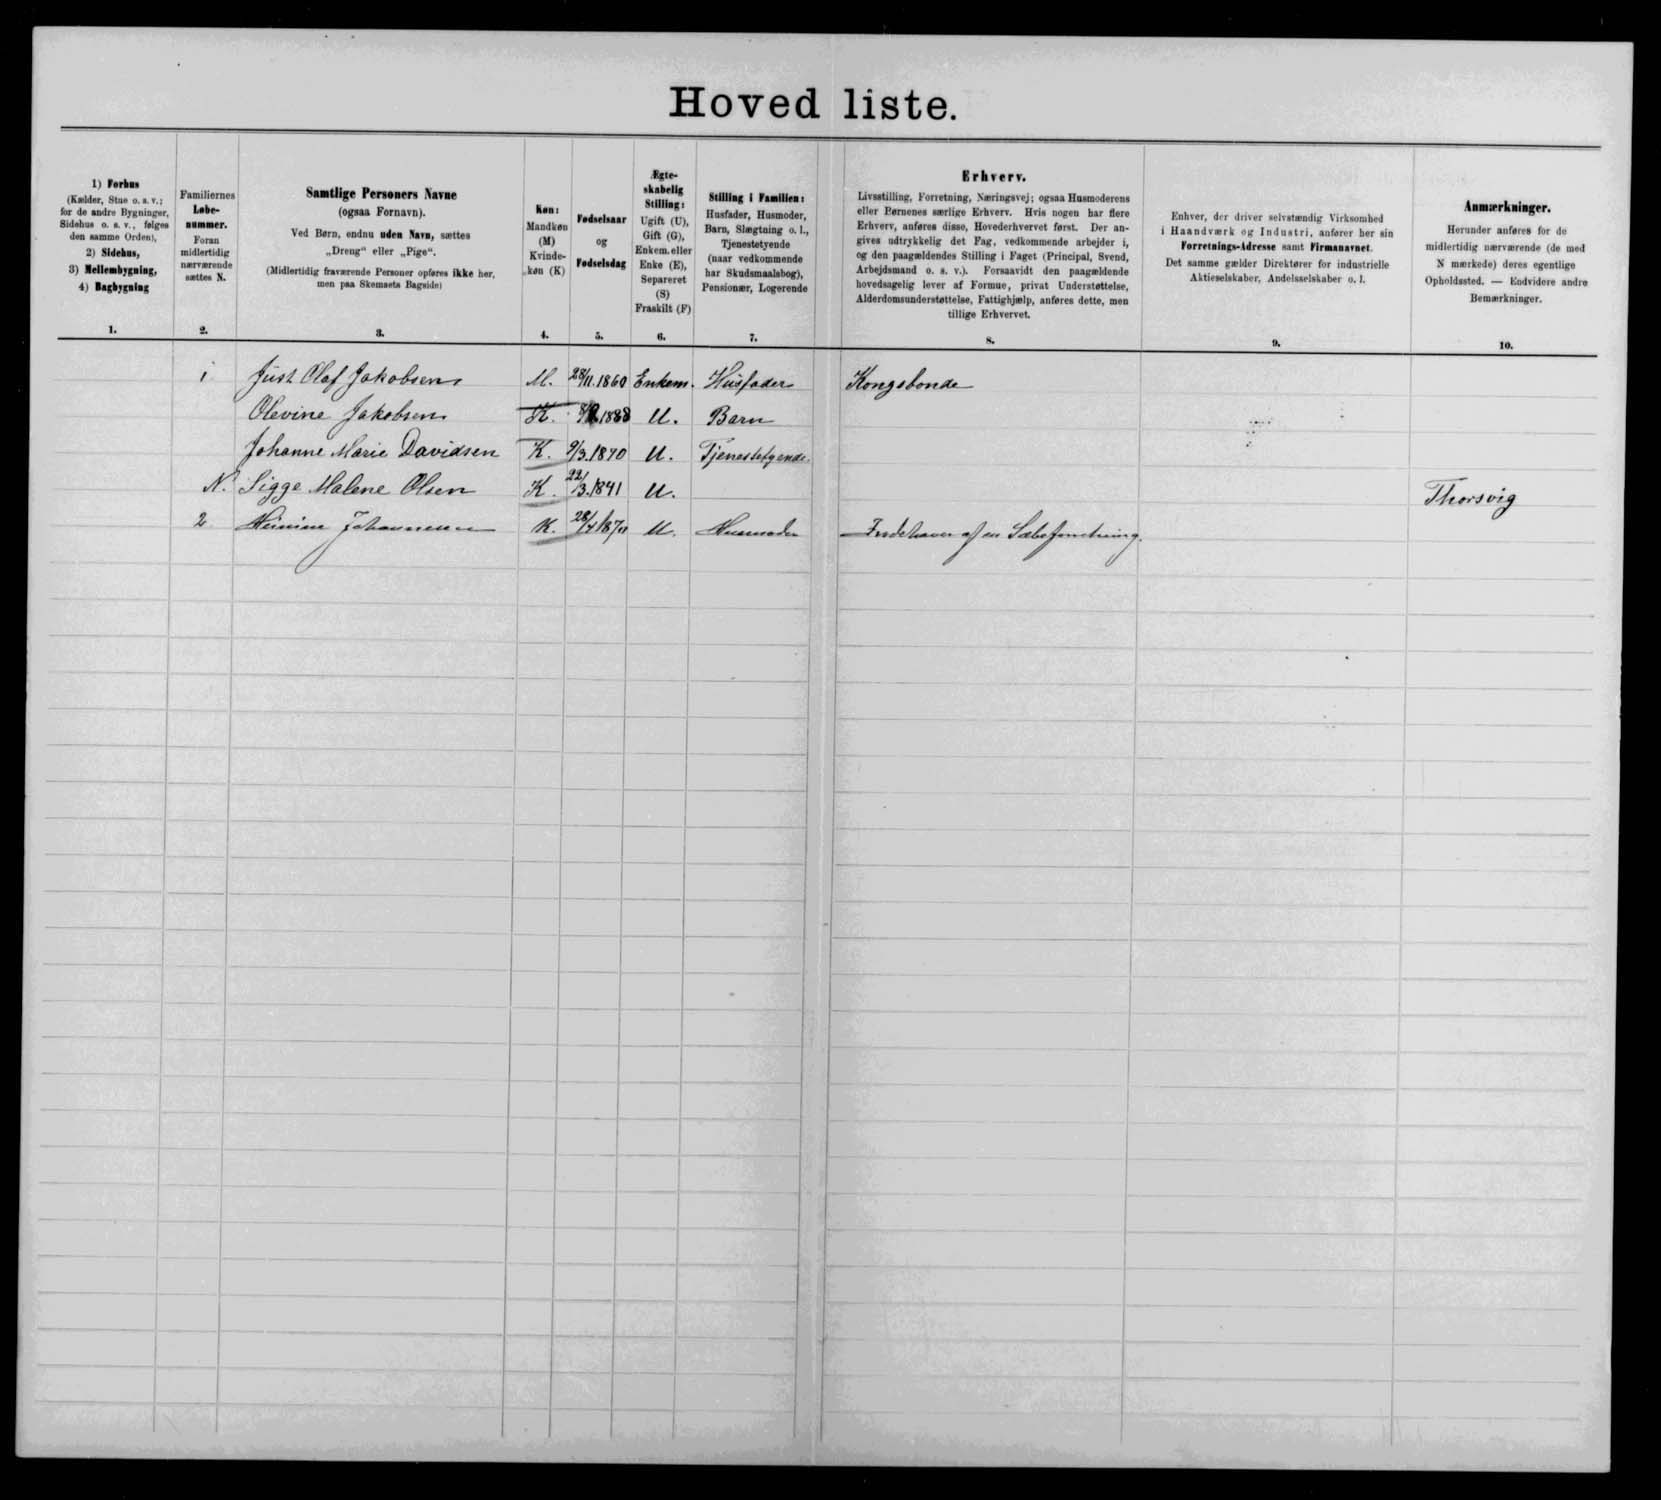 Hoved liste.
1) Forhus
(Kælder, Stue o. s. v.;
for de andre Bygninger,
Sidehus o. s. v., følges
den samme Orden),
2) Sidehus,
3) Mellembygning,
4) Bagbygning
1.
Familiernes
Løbe-
nummer.
Foran
midlertidig
nærværende
sættes N.
2.
Samtlige Personers Navne
(ogsaa Fornavn).
Ved Børn, endnu uden Navn, sættes
„Dreng“ eller „Pige“.
(Midlertidig fraværende Personer opføres ikke her,
men paa Skemaets Bagside)
3.
Køn:
Mandkøn
(M)
Kvinde-
køn (K)
4.
Fødselsaar
og
Fødselsdag
5.
Ægte-
skabelig
Stilling:
Ugift (U),
Gift (G),
Enkem. eller
Enke (E),
Separeret
(S)
Fraskilt (F)
6.
Stilling i Familien:
Husfader, Husmoder,
Barn, Slægtning o. l.,
Tjenestetyende
(naar vedkommende
har Skudsmaalsbog),
Pensionær, Logerende
7.
Erhverv.
Livsstilling, Forretning, Næringsvej; ogsaa Husmoderens
eller Børnenes særlige Erhverv. Hvis nogen har flere
Erhverv, anføres disse, Hovederhvervet først. Der an-
gives udtrykkelig det Fag, vedkommende arbejder i,
og den paagældendes Stilling i Faget (Principal, Svend,
Arbejdsmand o. s. v.). Forsaavidt den paagældende
hovedsagelig lever af Formue, privat Understøttelse,
Alderdomsunderstøttelse, Fattighjælp, anføres dette, men
tillige Erhvervet.
8.
Enhver, der driver selvstændig Virksomhed
i Haandværk og Industri, anfører her sin
Forretnings-Adresse samt Firmanavnet.
Det samme gælder Direktører for industrielle
Aktieselskaber, Andelsselskaber o. l.
9.
Anmærkninger.
Herunder anføres for de
midlertidig nærværende (de med
N mærkede) deres egentlige
Opholdssted. — Endvidere andre
Bemærkninger.
10.
1 Just Olaf Jakobsen M. 28/11.1860 Enkem. Husfader Kongsbonde
Olevine Jakobsen K. 1888 U. Barn
Johanne Marie Davidsen K. 9/3.1870 U. Tjenestetyende.
N. Sigge Malene Olsen K. 22/3.1841 U. Thorsvig
2 Johannesen K. U. Husmoder Indehaver af en